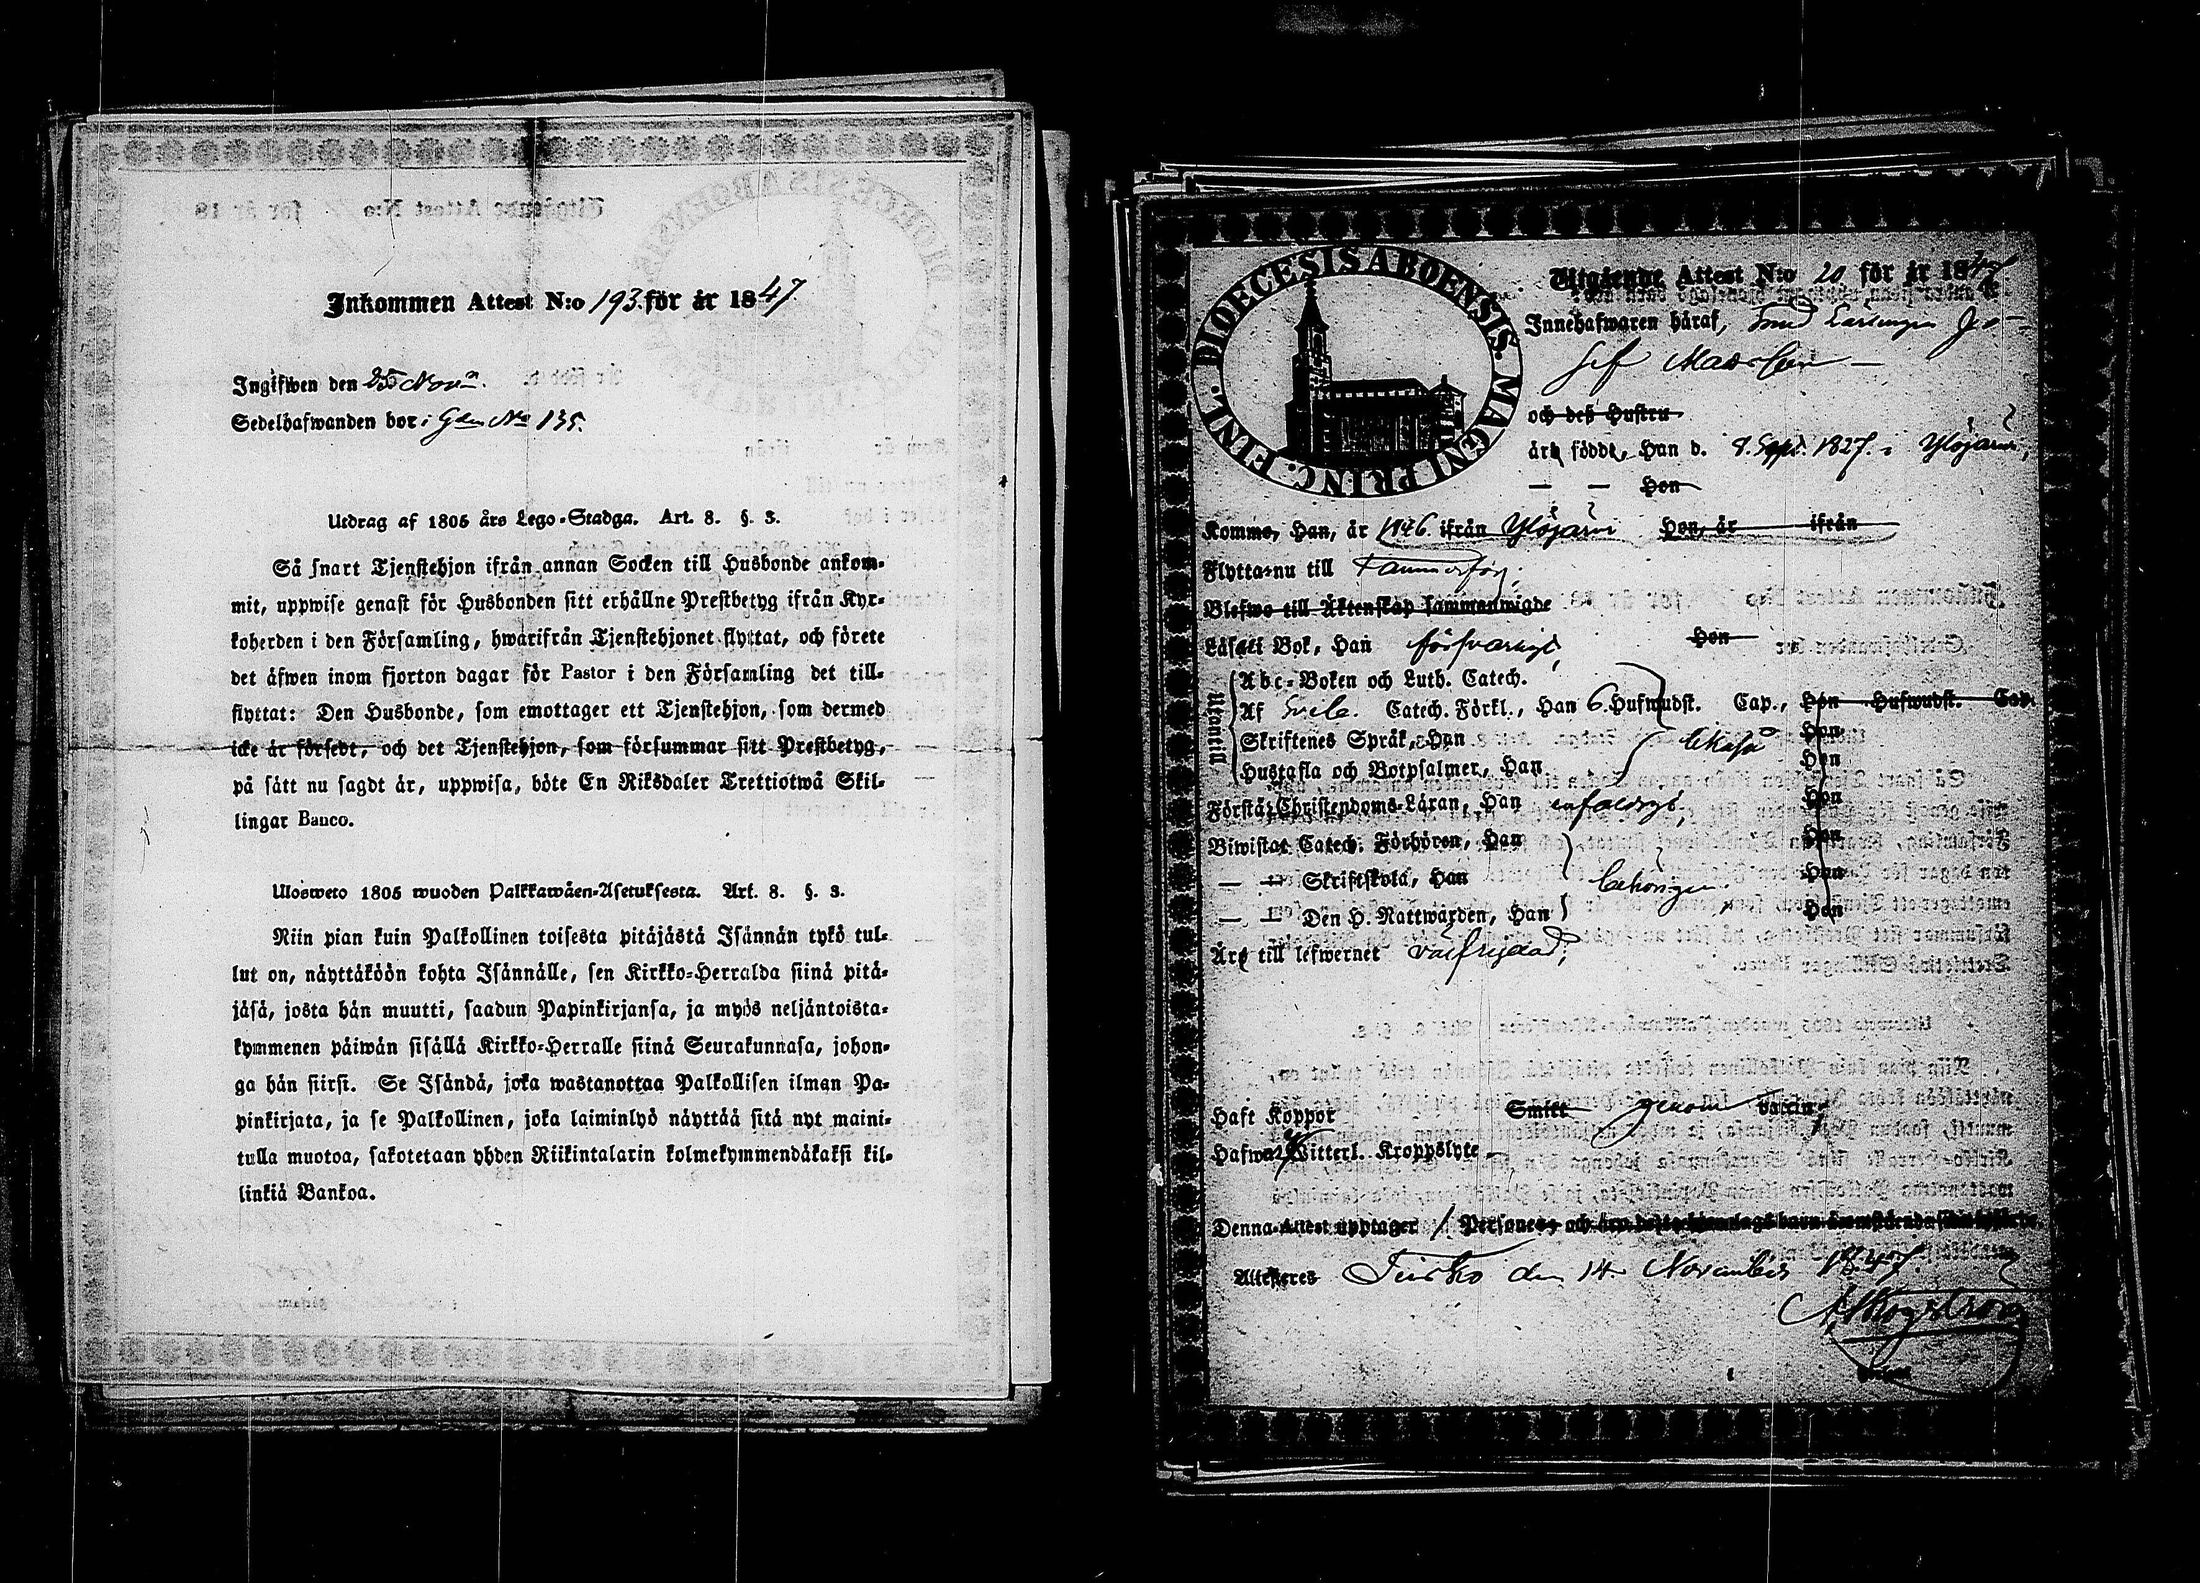 Inkommen Attest N:o 193. för år 1847.
Ingifwen den 25 Nov.
Sedelhafwanden bor i Gden No 135.
Utdrag af 1805 års Lego-Stadga. Art. 8. §. 3.
Så snart Tjenstehjon ifrån annan Socken till Husbonde ankom-
mit, uppwise genast för Husbonden sitt erhållne Prestbetyg ifrån Kyr-
koherden i den Församling, hwarifrån Tjenstehjonet flyttat, och förete
det äfwen inom fjorton dagar för Pastor i den Församling det till-
flyttat: Den Husbonde, som emottager ett Tjenstehjon, som dermed
icke är försedt, och det Tjenstehjon, som försummar sitt Prestbetyg,
på sätt nu sagdt är, uppwisa, böte En Riksdaler Trettiotwå Skil-
lingar Banco.
Ulosweto 1805 wuoden Palkkawäen-Asetuksesta. Art. 8. §. 3.
Niin pian kuin Palkollinen toisesta pitäjästä Isännän tykö tul-
lut on, näyttäköön kohta Isännälle, sen Kirkko-Herralda siinä pitä-
jäsä, josta hän muutti, saadun Papinkirjansa, ja myös neljäntoista-
kymmenen päiwän sisällä Kirkko-Herralle siinä Seurakunnasa, johon-
ga hän siirsi. Se Isändä, joka wastanottaa Palkollisen ilman Pa-
pinkirjata, ja se Palkollinen, joka laiminlyö näyttää sitä nyt maini-
tulla muotoa, sakotetaan yhden Riikintalarin kolmekymmendäkaksi kil-
linkiä Bankoa.
DIOECESIS ABOENSIS. MAGNI PRINC. FINL.
Utgående Attest N:o 20 för år 1847
Innehafwaren häraf, Smed Lärlingen Jo-
sef
och dess Hustru
äro födde, Han d. 9. Sept. 1827. i Ylöjärvi,
— — Hon
Kommo, Han, år 1846 ifrån Ylöjärvi Hon, år ifrån
Flytta nu till Tammerfors,
Blefwo till Äktenskap sammanwigde
Läsa i Bok, Han försvarligt, Hon
Utantill
Abc-Boken och Luth. Catech.
Af Catech. Förkl., Han 6. Hufwudst. Cap., Hon Hufwudst. Cap.
Skriftenes Språk, Han Hon
Hustafla och Botpsalmer, Han Hon
Förstå Christendoms-Läran, Han enfaldigt, Hon
Biwistat Catech. Förhören, Han Hon
— — Skriftskola, Han behörigen. Hon
— — Den H. Nattwarden, Han Hon
Äro till lefwernet välfrejdad;
Haft Koppor Smitt genom vaccin;
Hafwa Witterl. Kroppslyte
Denna Attest upptager 1. Personer,
Attesteras Teisko den 14. November 1847.